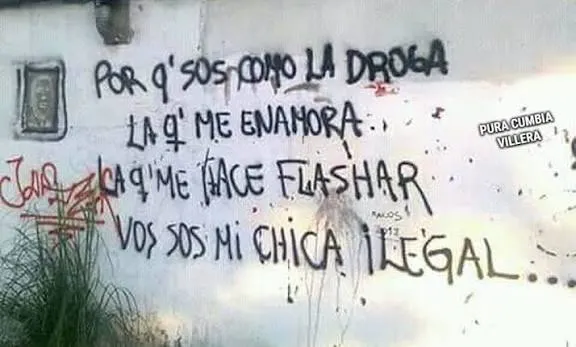 POR Q' SOS COMO LA DROGA
LA Q' ME ENAMORA..
LA Q' ME HACE FLASHAR
VOS SOS MI CHICA iLEGAL...
PURA CUMBIA
VILLERA